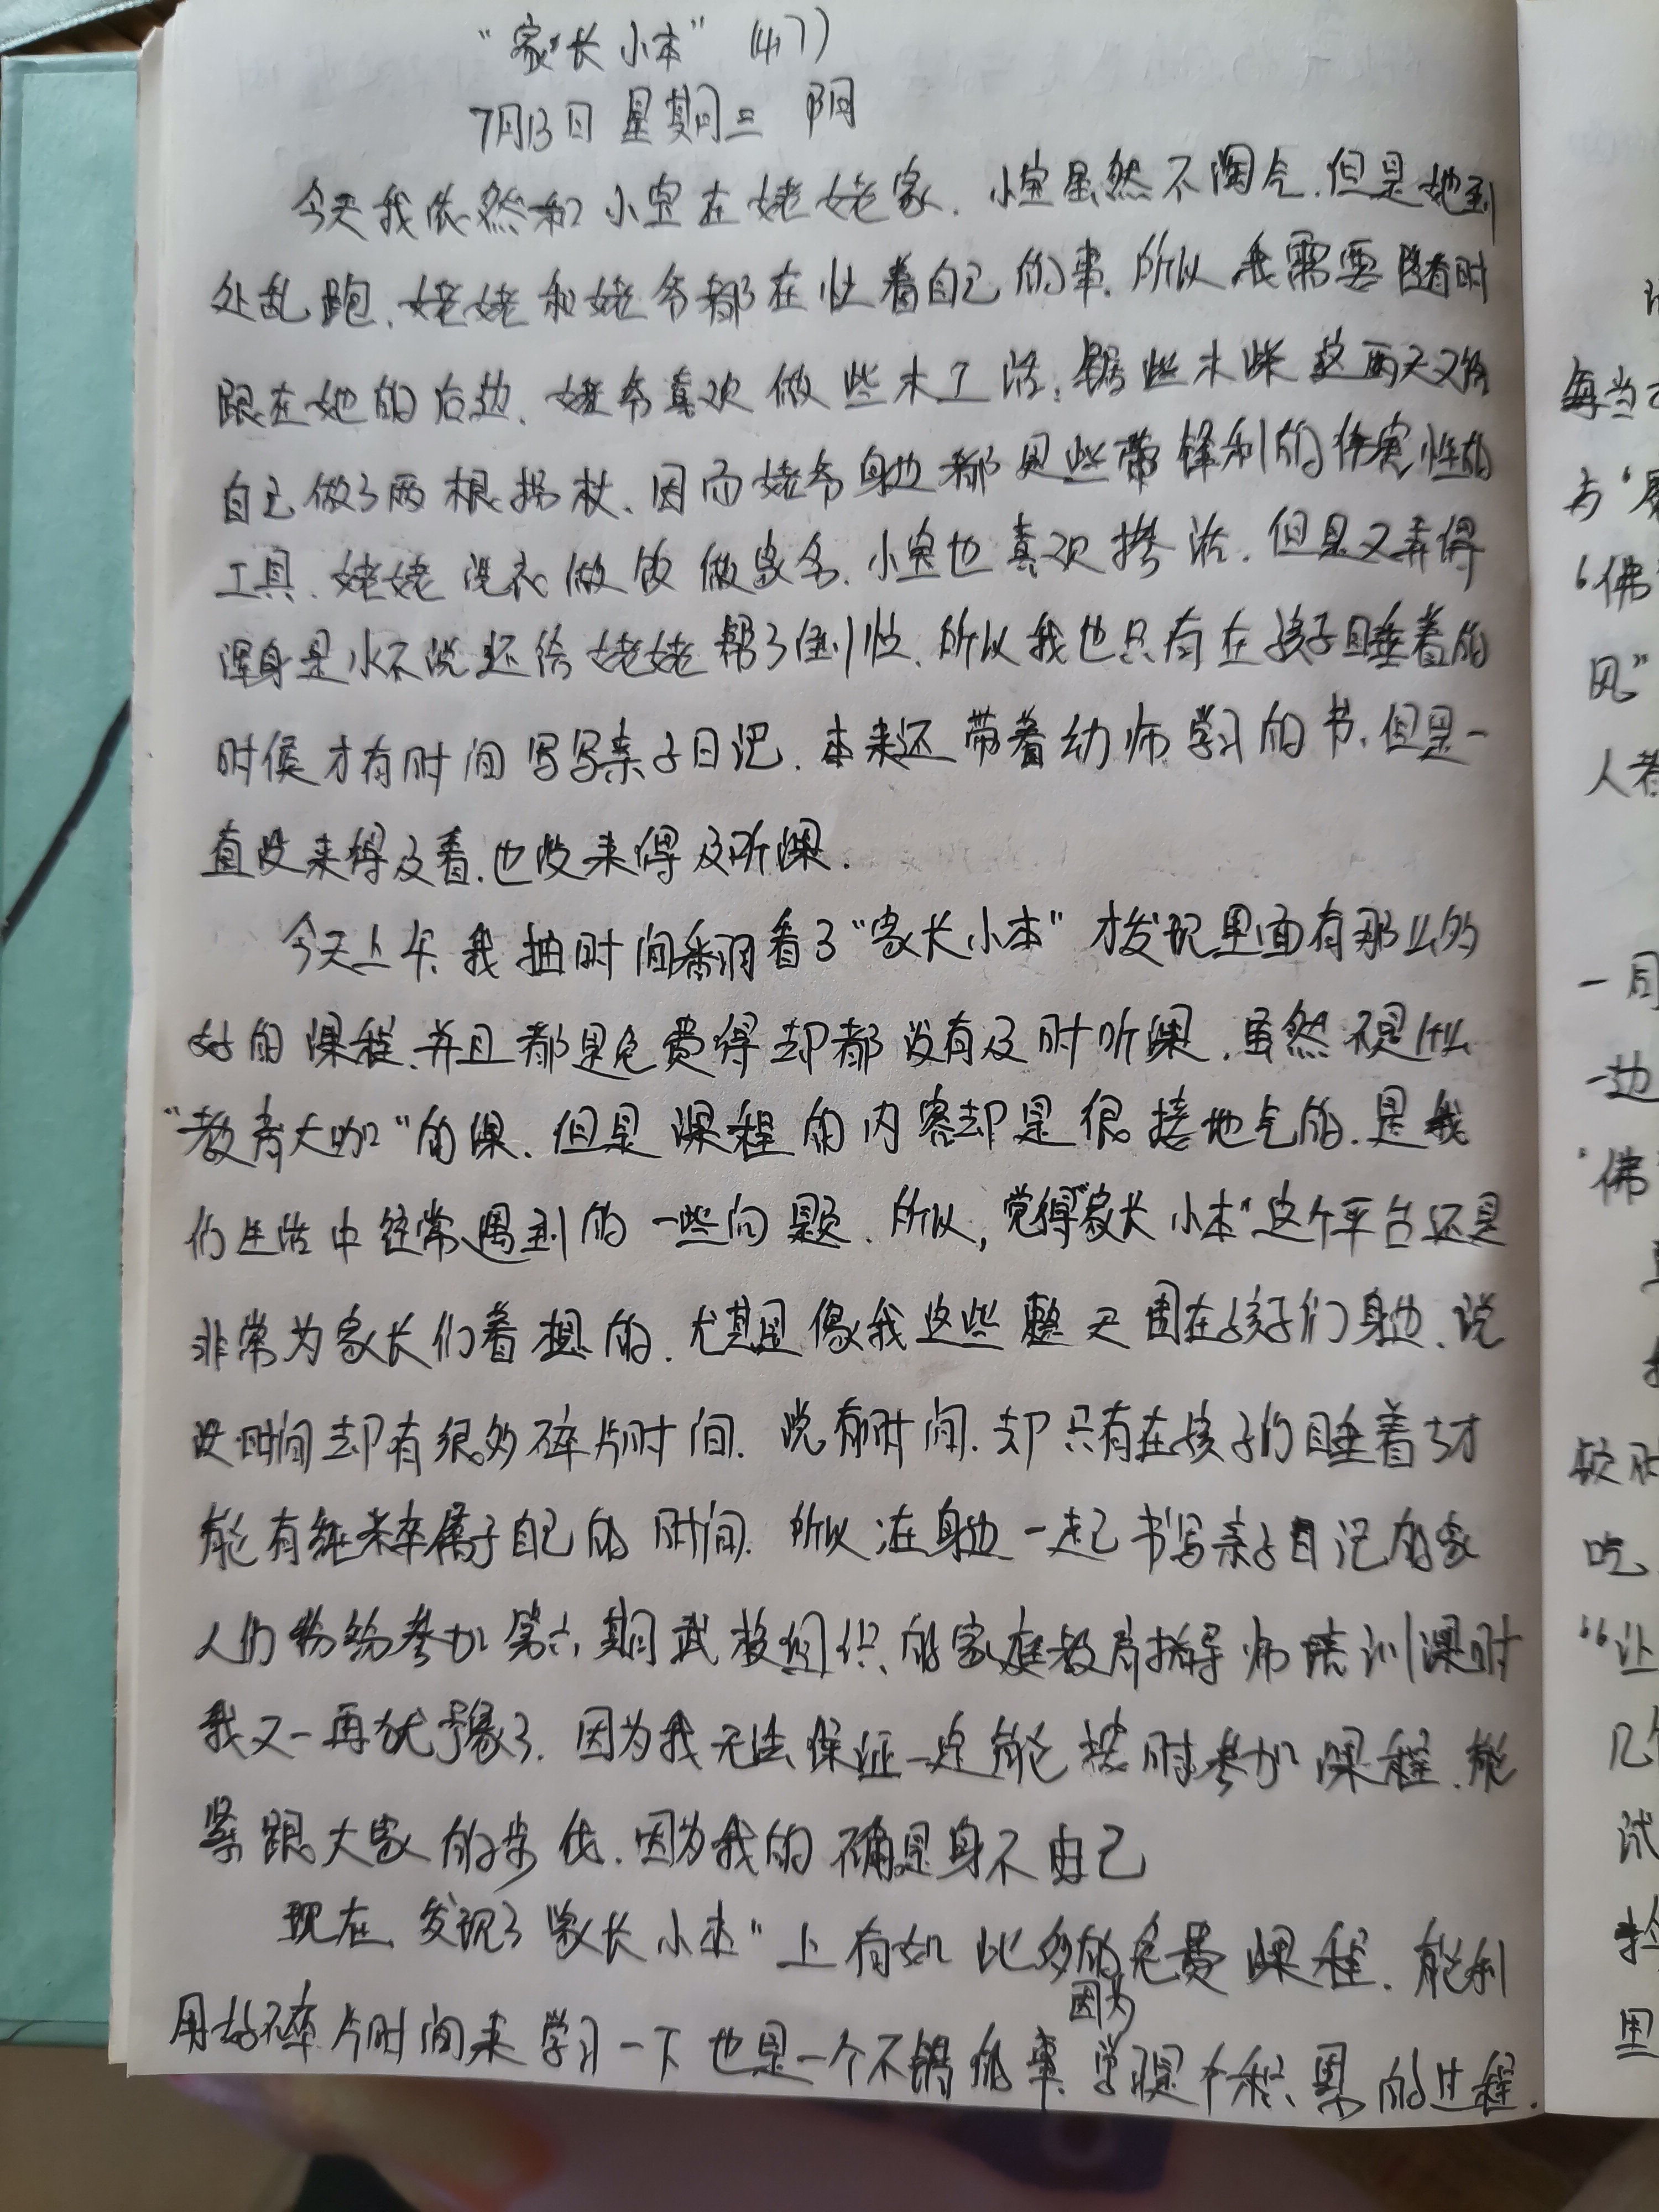 “家长小本”(47)
7月13日 星期三 阴
今天我依然和小宝在姥姥家.小宝虽然不淘气.但是她到
处乱跑、姥姥和姥爷都在忙着自己的事.所以我需要随时
跟在她的后边、姥爷喜欢做些木工活;锯些木柴这两天又给
自己做了两根拐杖、因而姥爷身边都是些带锋利的伤害性的
工具、姥姥洗衣做饭做家务、小宝也喜欢掺活.但是又弄得
浑身是水不说还给姥姥帮了倒忙、所以我也只有在孩子睡着的
时候才有时间写写亲子日记、本来还带着幼师学习的书、但是一
直没来得及看.也没来得及听课.
今天上午.我抽时间翻看了“家长小本”才发现里面有那么多
好的课程、并且都是免费得却都没有及时听课.虽然不是什么
“教育大咖”的课、但是课程的内容却是很接地气的.是我
们生活中经常遇到的一些问题、所以,觉得“家长小本”这个平台还是
非常为家长们着想的.尤其是像我这些整天围在孩子们身边、说
没时间却有很多碎片时间.说有时间.却只有在孩子们睡着了才
能有纯粹属于自己的时间.所以在身边一起书写亲子日记的家
人们纷纷参加第六期武校组织的家庭教育指导师培训课时
我又一再犹豫了.因为我无法保证一定能按时参加课程.能
紧跟大家的步伐.因为我的确是身不由己
现在、发现了“家长小本”上有如此多的免费课程.能利
因为
用好碎片时间来学习一下也是一个不错的事、学习是个积累的过程.
每当
“佛
风”
一周
一边
“佛
吃、
“让
几个
试
里